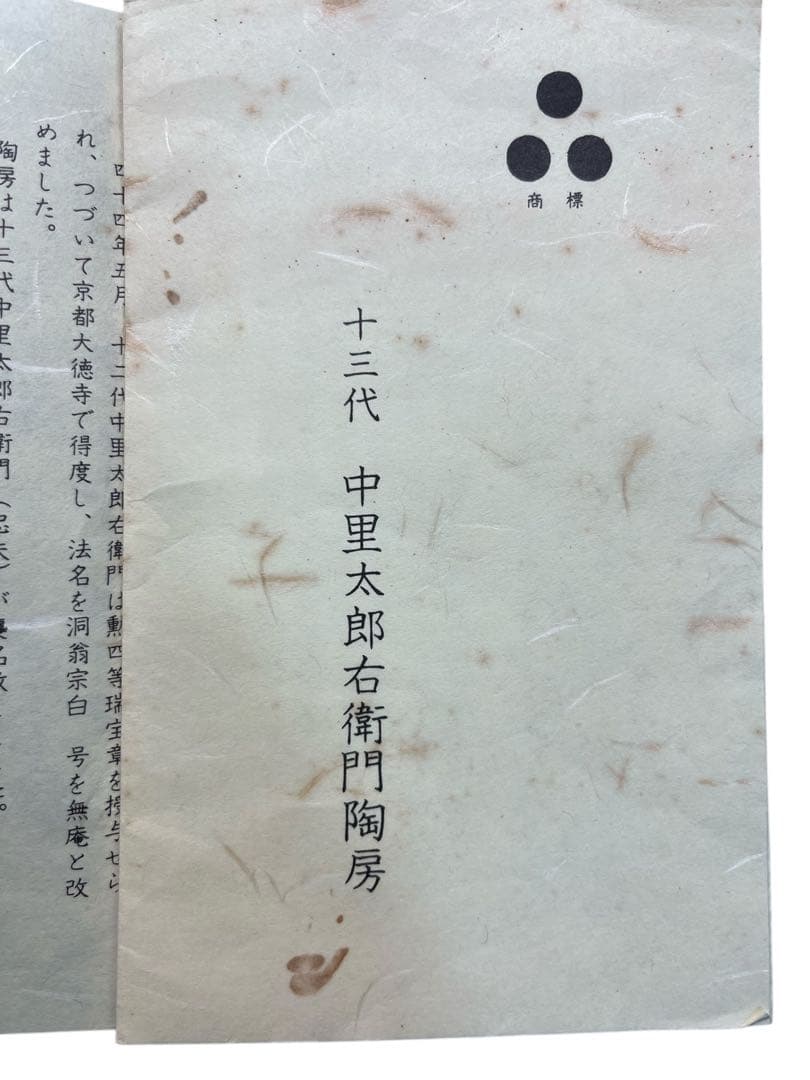 商標
十三代 中里太郎右衛門陶房
四十四年五月、十二代中里太郎右衛門は勲四等瑞宝章を授与せら
れ、つづいて京都大徳寺で得度し、法名を洞翁宗白 号を無庵と改
めました。
陶房は十三代中里太郎右衛門(忠夫)が襲名